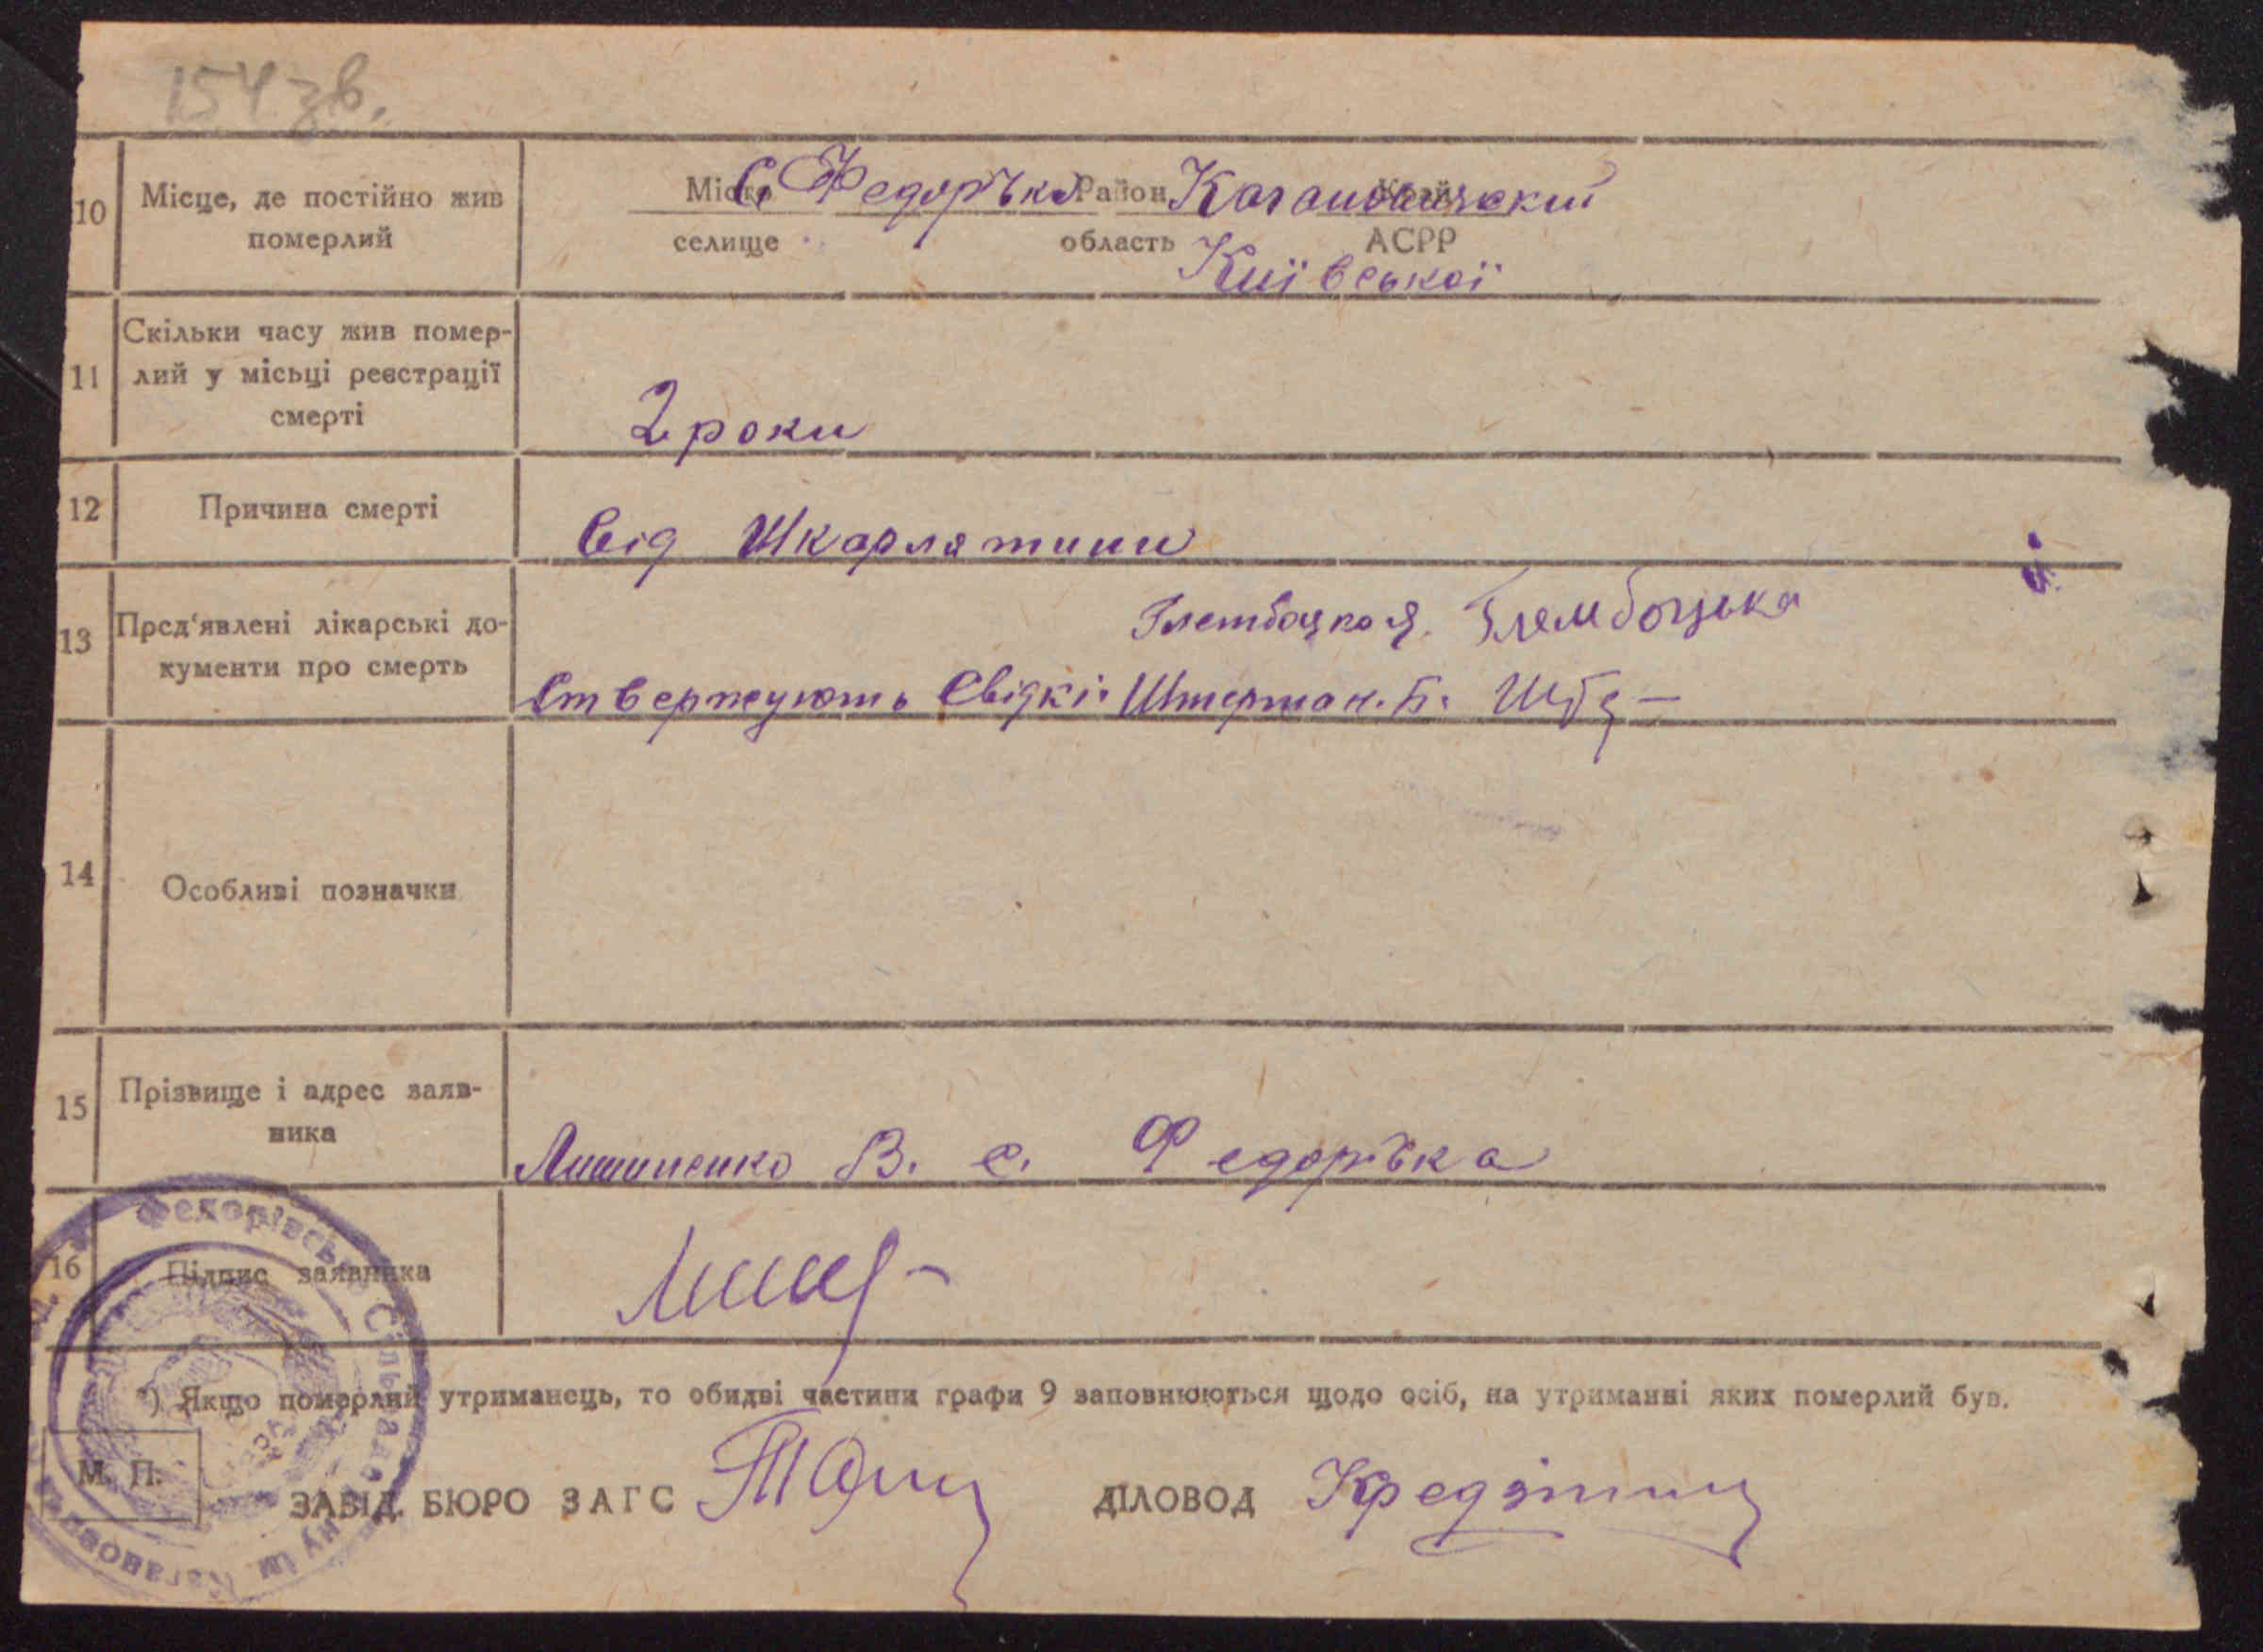 154 зв.
10 Місце, де постійно жив померлий
Місто С. Федорівка Район Кагановичский Край
селище область АСРР
Київської
11 Скільки часу жив помер-
лий у місьці реєстрації
смерті
2 роки
12 Причина смерті
від Шкарлятини
13 Пред'явлені лікарські до-
кументи про смерть
Глембоцкая. Глембоцька
Ствержують Свідкі: Штерман. Б.
14 Особливі позначки
15 Прізвище і адрес заяв-
ника
В. с. Федорівка
16 Підпис заявника
*) Якщо померлий утриманець, то обидві частини графи 9 заповнюються щодо осіб, на утриманні яких померлий був.
М. П.
ЗАВІД. БЮРО ЗАГС ДІЛОВОД
Федорівська Сільрада